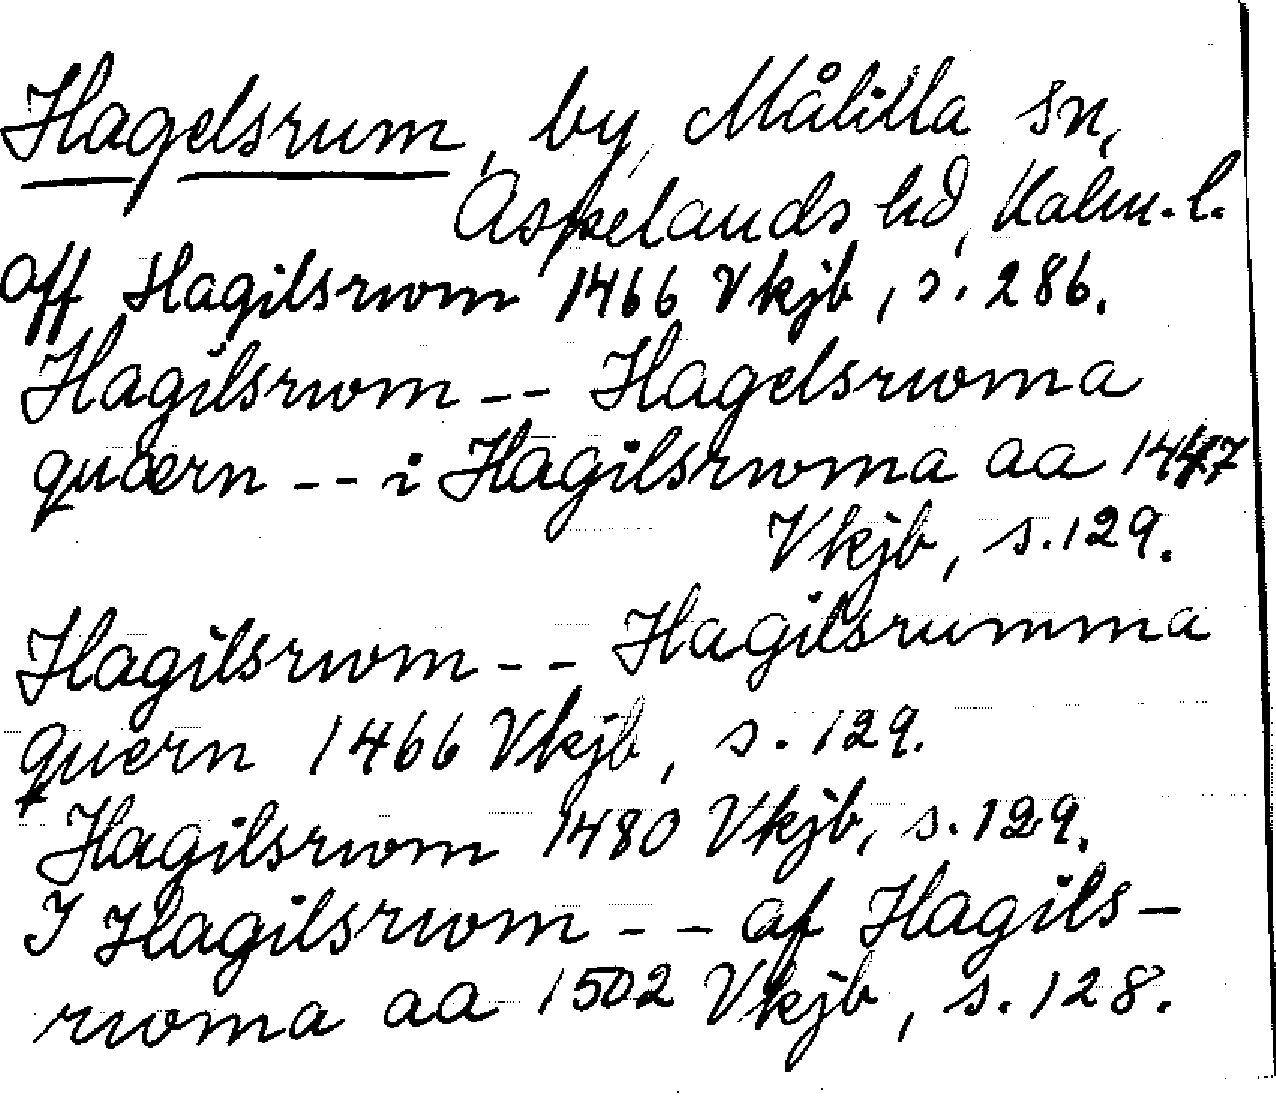 Hagelsrum, by, Målilla sn,
Aspelands hd, Kalm. l.
Off Hagilsrwm 1466 Vkjb, s. 286.
Hagilsrwm -- Hagelsrwma
quærn -- i Hagilsrwma aa 1447
Vkjb, s. 129.
Hagilsrwm -- Hagilsrumma
quern 1466 Vkjb, s. 129.
Hagilsrwm 1480 Vkjb, s. 129.
I Hagilsrwm -- af Hagils-
rwma aa 1502 Vkjb, s. 128.